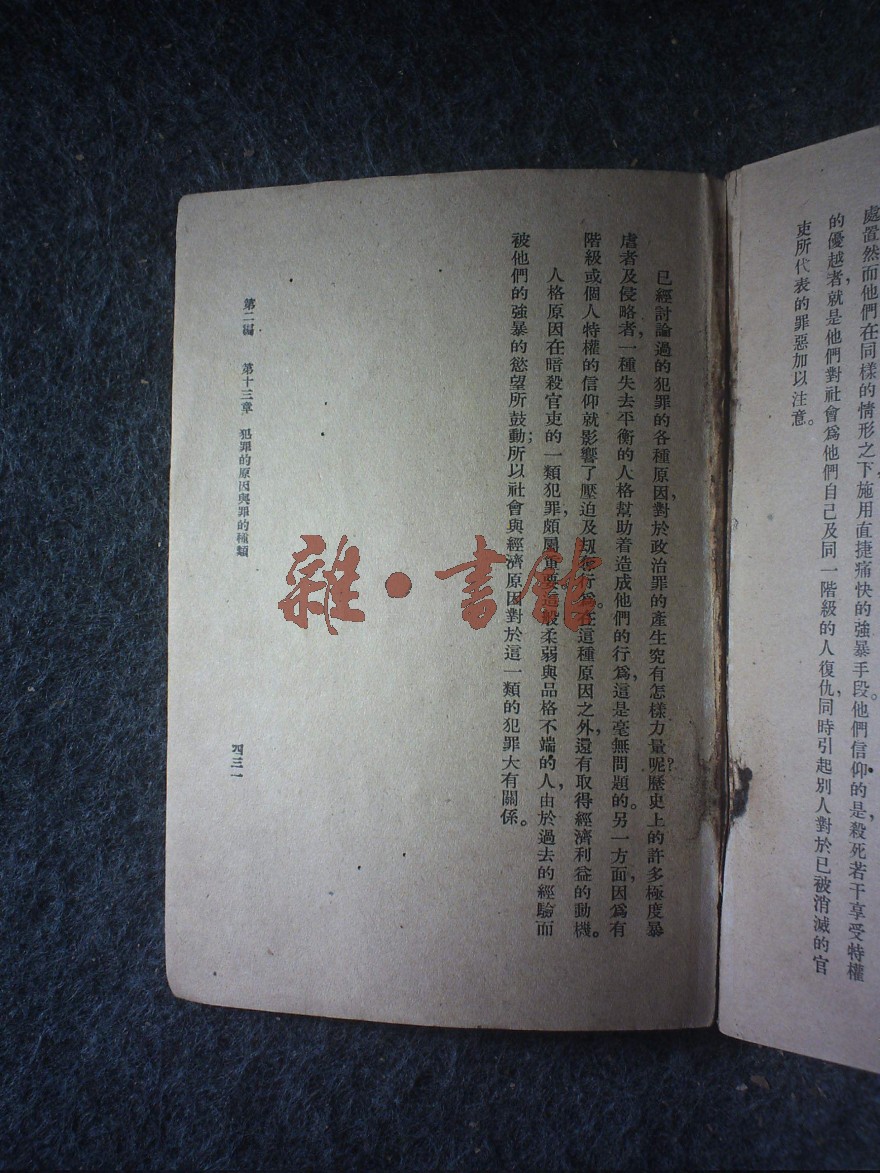 處置然而他們在同樣的情形之下,施用直捷痛快的強暴手段。他們信仰的是,殺死若干享受特權
的優越者,就是他們對社會爲他們自己及同一階級的人復仇,同時引起別人對於已被消滅的官
吏所代表的罪惡加以注意。
已經討論過的犯罪的各種原因,對於政治罪的產生究有怎樣力量呢?歷史上的許多極度暴
虐者及侵略者,一種失去平衡的人格幫助着造成他們的行爲,這是毫無問題的。另一方面,因爲有
階級或個人特權的信仰就影響了壓迫及刼奪行爲。在這種原因之外,還有取得經濟利益的動機。
人格原因在暗殺官吏的一類犯罪,頗屬重要。這般柔弱與品格不端的人,由於過去的經驗而
被他們的強暴的慾望所鼓動;所以社會與經濟原因對於這一類的犯罪大有關係。
第二編 第十三章 犯罪的原因與罪的種類
四三一
雜·書館